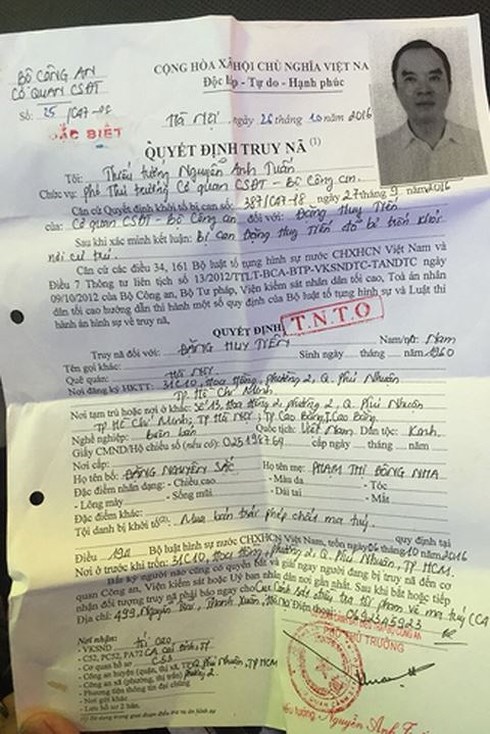 BỘ CÔNG AN
CƠ QUAN CSĐT
CỘNG HÒA XÃ HỘI CHỦ NGHĨA VIỆT NA
Độc lập - Tự do - Hạnh phúc
Số: 25 /C47-
ĐẶC BIỆT
Hà Nội, ngày 26 tháng 10 năm 2016
QUYẾT ĐỊNH TRUY NÃ (1)
Tôi: Thiếu tướng Nguyễn Anh Tuấn
Chức vụ: phó Thủ trưởng Cơ quan CSĐT - Bộ Công an.
Căn cứ Quyết định khởi tố bị can số: 387/C47-P8, ngày 27 tháng 9 năm 2016
của: Cơ quan CSĐT - Bộ Công an đối với: Đặng Huy Tiến
Sau khi xác minh kết luận: Bị can Đặng Huy Tiến đã bỏ trốn khỏi
nơi cư trú.
Căn cứ các điều 34, 161 Bộ luật tố tụng hình sự nước CHXHCN Việt Nam và
Điều 7 Thông tư liên tịch số 13/2012/TTLT-BCA-BTP-VKSNDTC-TANDTC ngày
09/10/2012 của Bộ Công an, Bộ Tư pháp, Viện kiểm sát nhân dân tối cao, Toà án nhân
dân tối cao hướng dẫn thi hành một số quy định của Bộ luật tố tụng hình sự và Luật thi
hành án hình sự về truy nã,
QUYẾT ĐỊNH
T.N.T.O
Truy nã đối với: ĐẶNG HUY TIẾN Nam/nữ: Nam
Tên gọi khác: Sinh ngày tháng năm 1960
Quê quán: Hà Nội
Nơi đăng ký HKTT: 31C10, Hoa Hồng, phường 2, Q. Phú Nhuận,
TP Hồ Chí Minh
Nơi tạm trú hoặc nơi ở khác: Số 13, Hoa Hồng 2, phường 2, Q. Phú Nhuận,
TP Hồ Chí Minh; TP Hà Nội; TP Cao Bằng, T. Cao Bằng.
Nghề nghiệp: buôn bán Quốc tịch: Việt Nam. Dân tộc: Kinh.
Giấy CMND/Hộ chiếu số (nếu có): cấp ngày tháng năm
Nơi cấp:
Họ tên bố: ĐẶNG NGUYÊN SẮC Họ tên mẹ: PHẠM THỊ ĐÔNG NHA
Đặc điểm nhân dạng: - Chiều cao - Màu da - Tóc
- Lông mày - Sống mũi - Dái tai - Mắt
Đặc điểm khác:
Tội danh bị khởi tố(2): Mua bán trái phép chất ma tuý. quy định tại
Điều 194 Bộ luật hình sự nước CHXHCN Việt Nam, trốn ngày 06 tháng 10 năm 2016
Nơi ở trước khi trốn: 31C10, Hoa Hồng, phường 2, Q. Phú Nhuận, TP. HCM.
Bất kỳ người nào cũng có quyền bắt và giải ngay người đang bị truy nã đến cơ
quan Công an, Viện kiểm sát hoặc Uỷ ban nhân dân nơi gần nhất. Sau khi bắt hoặc tiếp
nhận đối tượng truy nã phải báo ngay cho Cục Cảnh sát điều tra tội phạm về ma tuý (C4
Địa chỉ: 499, Nguyễn Trãi, Thanh Xuân, Hà Nội Điện thoại: 0692345923
Nơi nhận:
- VKSND tối cao,
- C52, PC52, PA72 CA các tỉnh, TP
- Cơ quan hồ sơ
- Công an huyện (quận, thị xã, TP) Q. Phú Nhuận, TP HCM
- Công an xã (phường, thị trấn) phường 2.
- Phương tiện thông tin đại chúng
- Nơi gửi khác
- Lưu hồ sơ 2 bản.
PHÓ THỦ TRƯỞNG
Thiếu tướng Nguyễn Anh